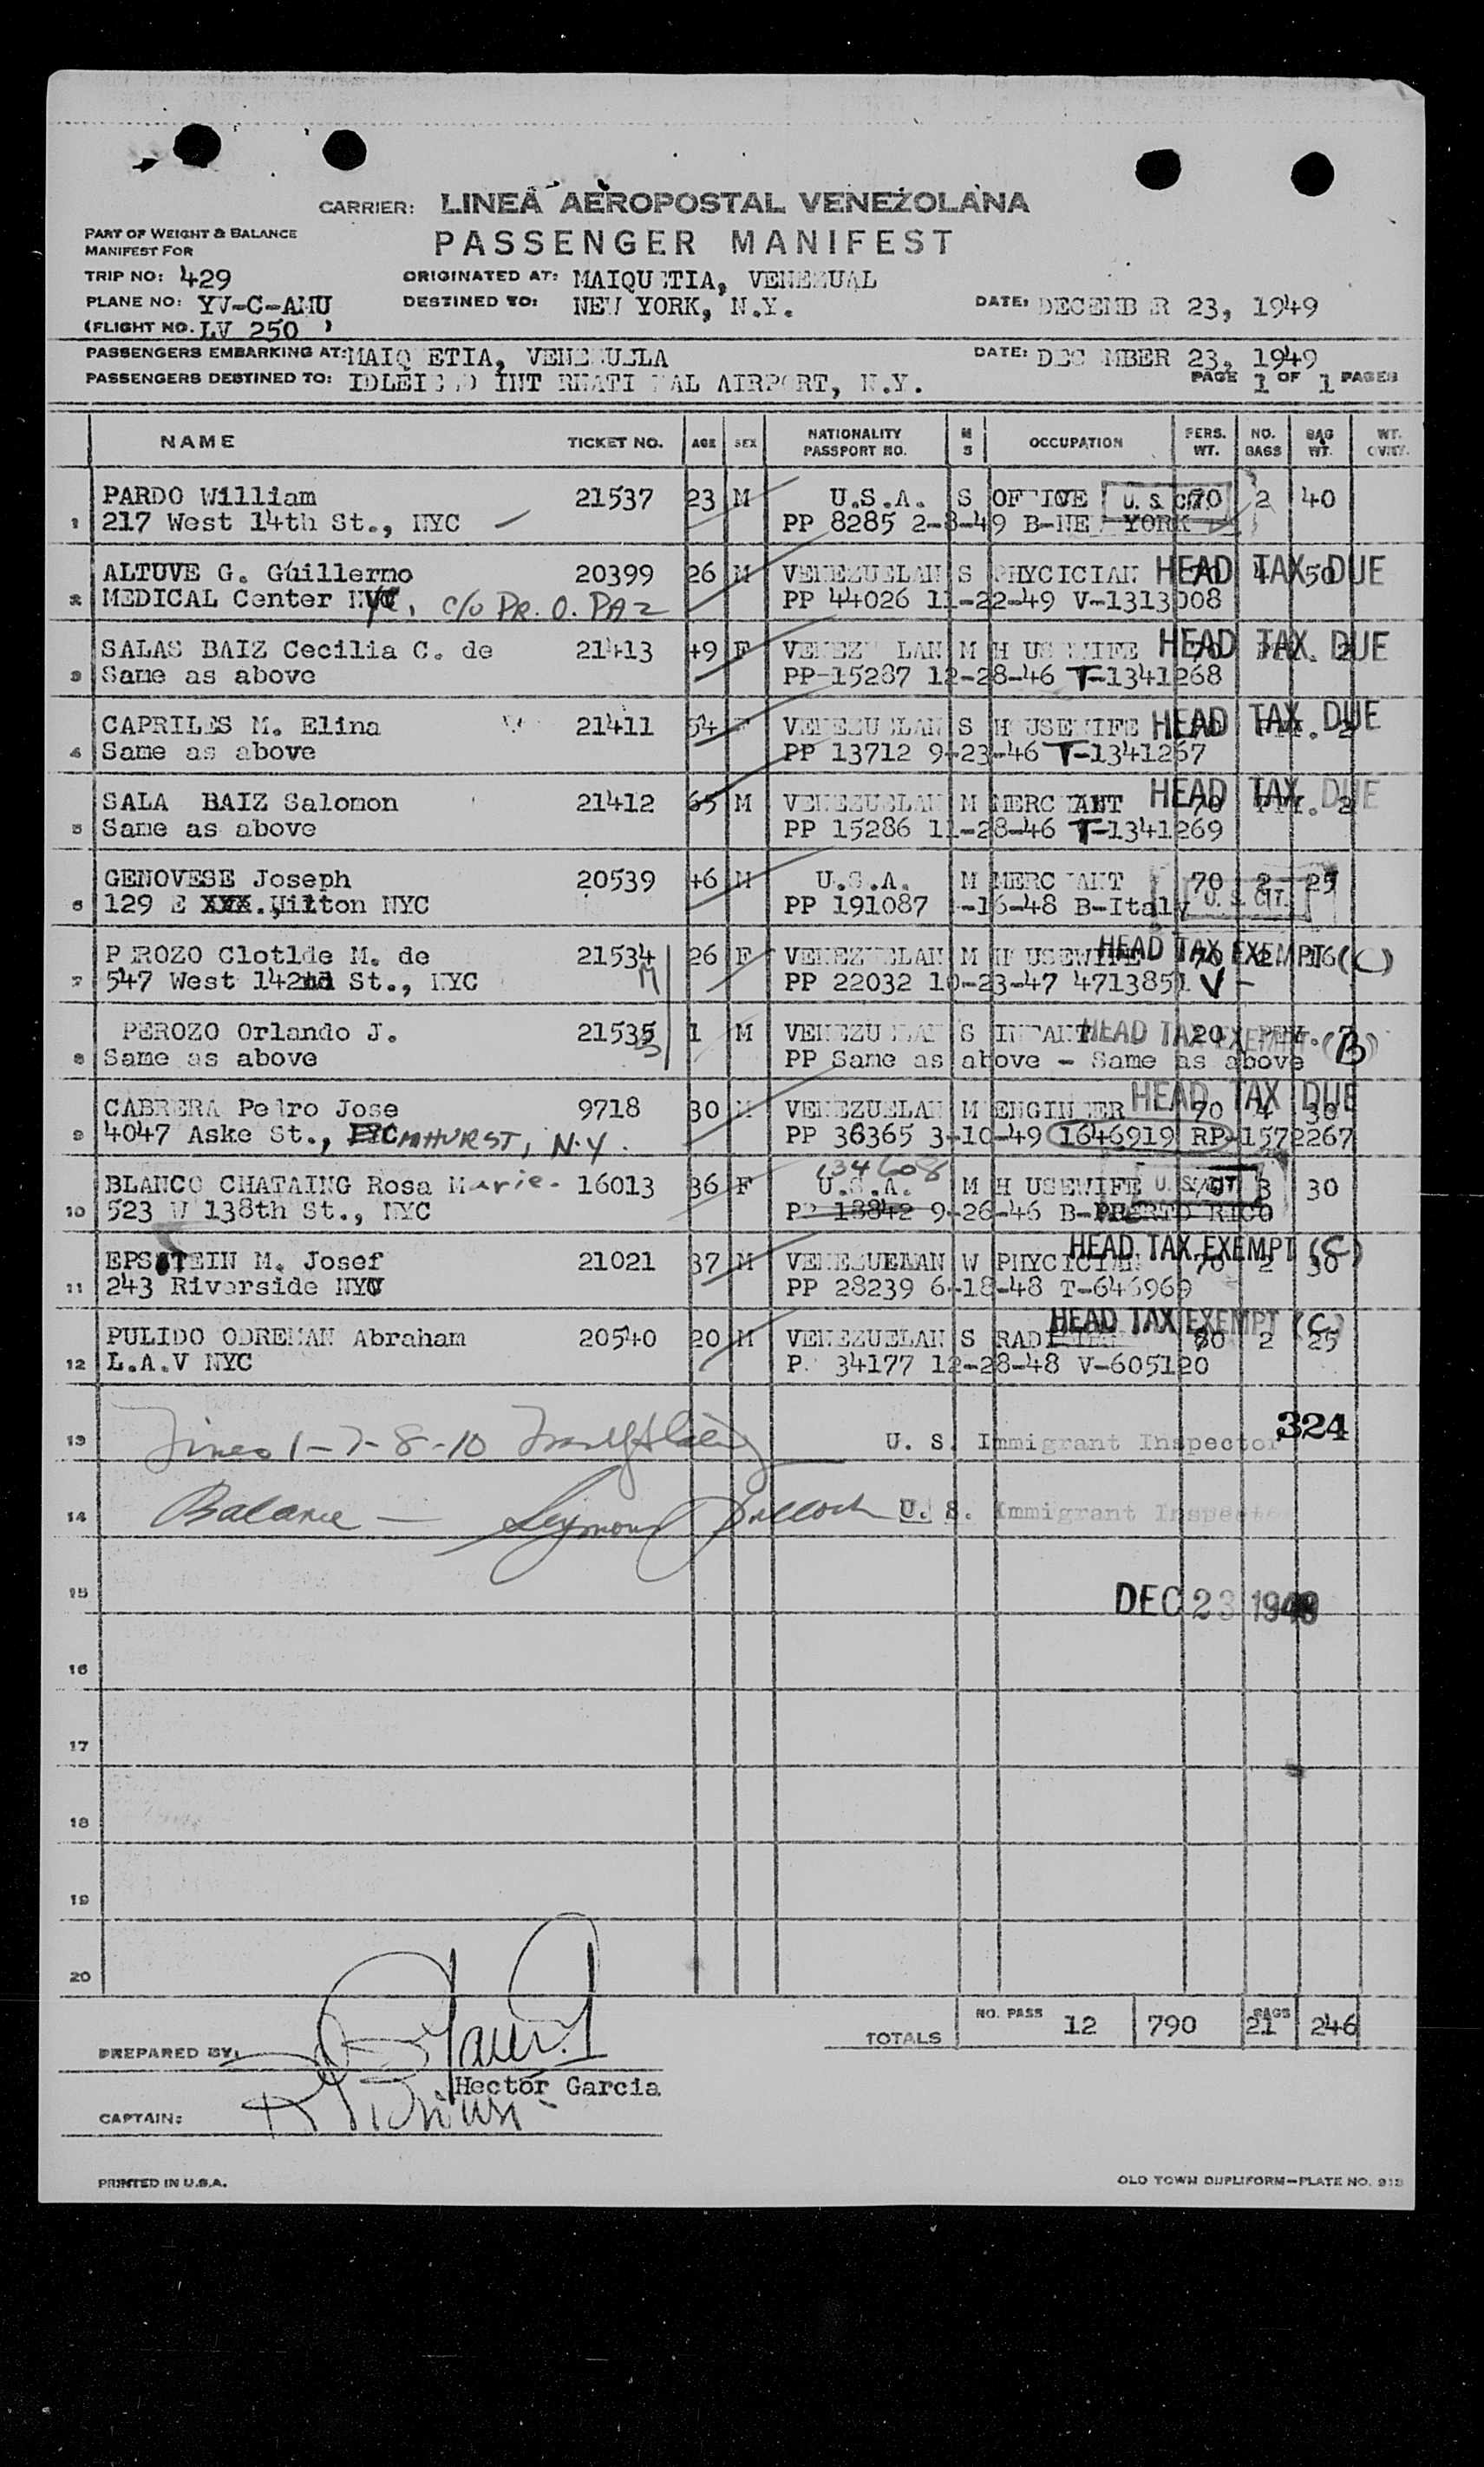 CARRIER: LINEA AEROPOSTAL VENEZOLANA
PART OF WEIGHT & BALANCE
MANIFEST FOR
PASSENGER MANIFEST
TRIP NO: 429 ORIGINATED AT: MAIQUETIA, VENEZUAL
PLANE NO: YV-C-AMU DESTINED TO: NEW YORK, N.Y. DATE: DECEMBER 23, 1949
(FLIGHT NO. LV 250 )
PASSENGERS EMBARKING AT: MAIQUETIA, VENEZUELA DATE: DECEMBER 23, 1949
PASSENGERS DESTINED TO: IDLEWILD INTERNATIONAL AIRPORT, N.Y. PAGE 1 OF 1 PAGES
NAME TICKET NO. AGE SEX NATIONALITY PASSPORT NO. M S OCCUPATION PERS. WT. NO. BAGS BAG WT. WT. OVWT.
PARDO William 21537 23 M U.S.A. S OFFICE U. S. CIT. 70 2 40
1 217 West 14th St., NYC PP 8285 2-8-49 B-NEW YORK
ALTUVE G. Guillermo 20399 26 M VENEZUELAN S PHYCICIAN HEAD TAX DUE 50
2 MEDICAL Center NYC, c/o DR. O. PAZ PP 44026 11-22-49 V-1313008
SALAS BAIZ Cecilia C. de 21413 49 F VENEZUELAN M HOUSEWIFE HEAD TAX DUE 2
3 Same as above PP-15287 12-28-46 T-1341268
CAPRILES M. Elina 21411 54 F VENEZUELAN S HOUSEWIFE HEAD TAX DUE 2
4 Same as above PP 13712 9-23-46 T-1341267
SALA BAIZ Salomon 21412 65 M VENEZUELAN M MERCHANT HEAD TAX DUE 70 2
5 Same as above PP 15286 11-28-46 T-1341269
GENOVESE Joseph 20539 46 M U.S.A. M MERCHANT 70 2 25 U. S. CIT.
6 129 E XXX. Wilton NYC PP 191087 1-16-48 B-Italy
PEROZO Clotlde M. de 21534 26 F VENEZUELAN M HOUSEWIFE HEAD TAX EXEMPT (C) 70 2 16
7 547 West 142nd St., NYC M PP 22032 10-23-47 4713851 V -
PEROZO Orlando J. 21535 1 M VENEZUELAN S INFANT HEAD TAX EXEMPT (B) 20
8 Same as above PP Same as above - Same as above
CABRERA Pedro Jose 9718 30 M VENEZUELAN M ENGINEER HEAD TAX DUE 70 4 30
9 4047 Aske St., ELMHURST, N.Y. PP 36365 3-10-49 1646919 RP-1572267
134608
BLANCO CHATAING Rosa Marie. 16013 36 F U.S.A. M HOUSEWIFE U. S. CIT. 70 3 30
10 523 W 138th St., NYC PP 18842 9-26-46 B-PUERTO RICO
EPSTEIN M. Josef 21021 37 M VENEZUELAN W PHYCICIAN HEAD TAX EXEMPT (C) 70 2 30
11 243 Riverside NYC PP 28239 6-18-48 T-646969
PULIDO ODREMAN Abraham 20540 20 M VENEZUELAN S HEAD TAX EXEMPT (C) 80 2 25
12 L.A.V NYC P. 34177 12-28-48 V-605120
13 Lines 1-7-8-10 U. S. Immigrant Inspector 324
14 Balance — Seymour Pollock U. S. Immigrant Inspector
15 DEC 23 1949
16
17
18
19
20
TOTALS NO. PASS 12 790 BAGS 21 246
PREPARED BY:
Hector Garcia
CAPTAIN:
PRINTED IN U.S.A. OLD TOWN DUPLIFORM—PLATE NO. 913